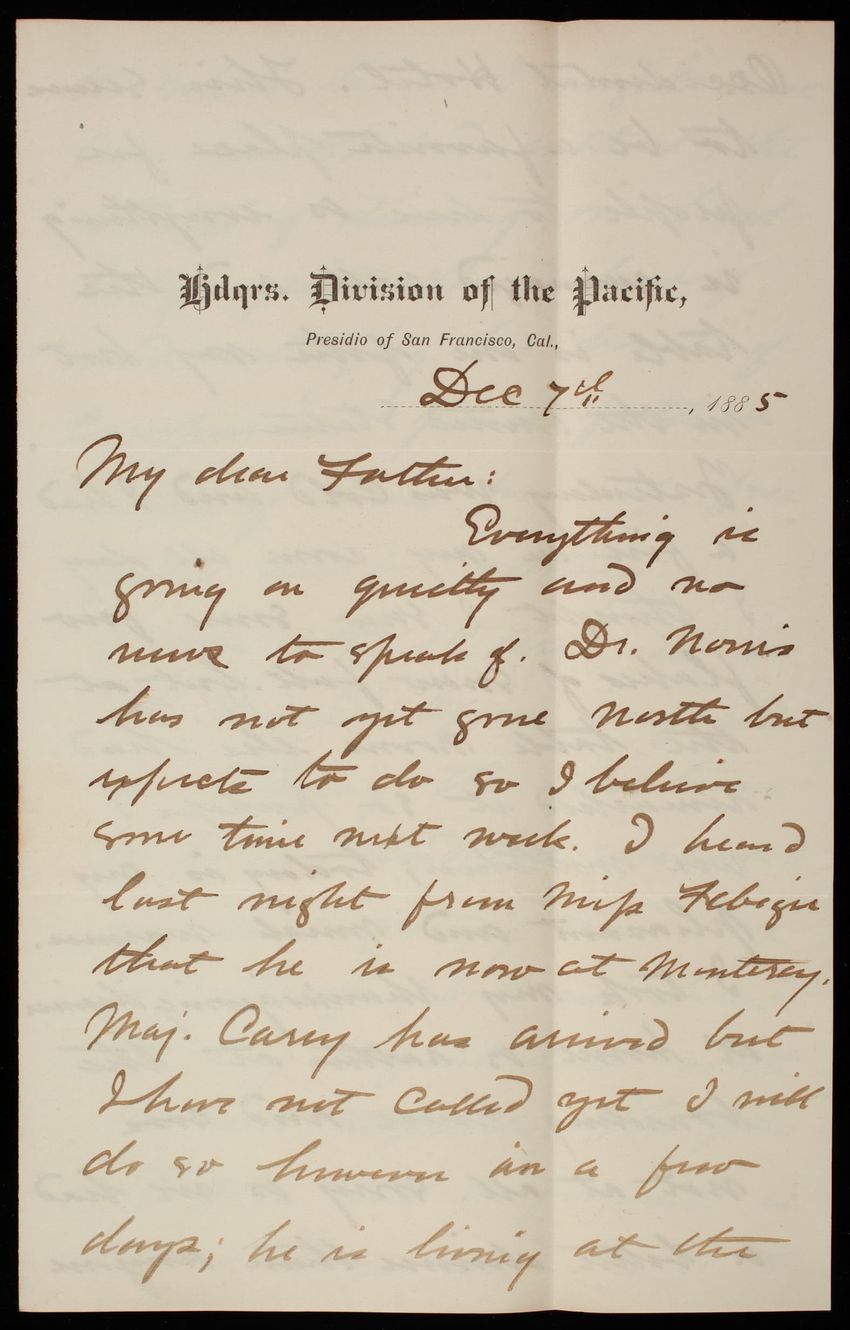 Hdqrs. Division of the Pacific,
Presidio of San Francisco, Cal.,
Dec 7th, 1885
My dear Father:
Everything is
going on quietly and no
news to speak of. Dr. Norris
has not yet gone North but
expects to do so I believe
some time next week. I heard
last night from Miss Febiger
that he is now at Monterey.
Maj. Carey has arrived but
I have not called yet I will
do so however in a few
days; he is living at the